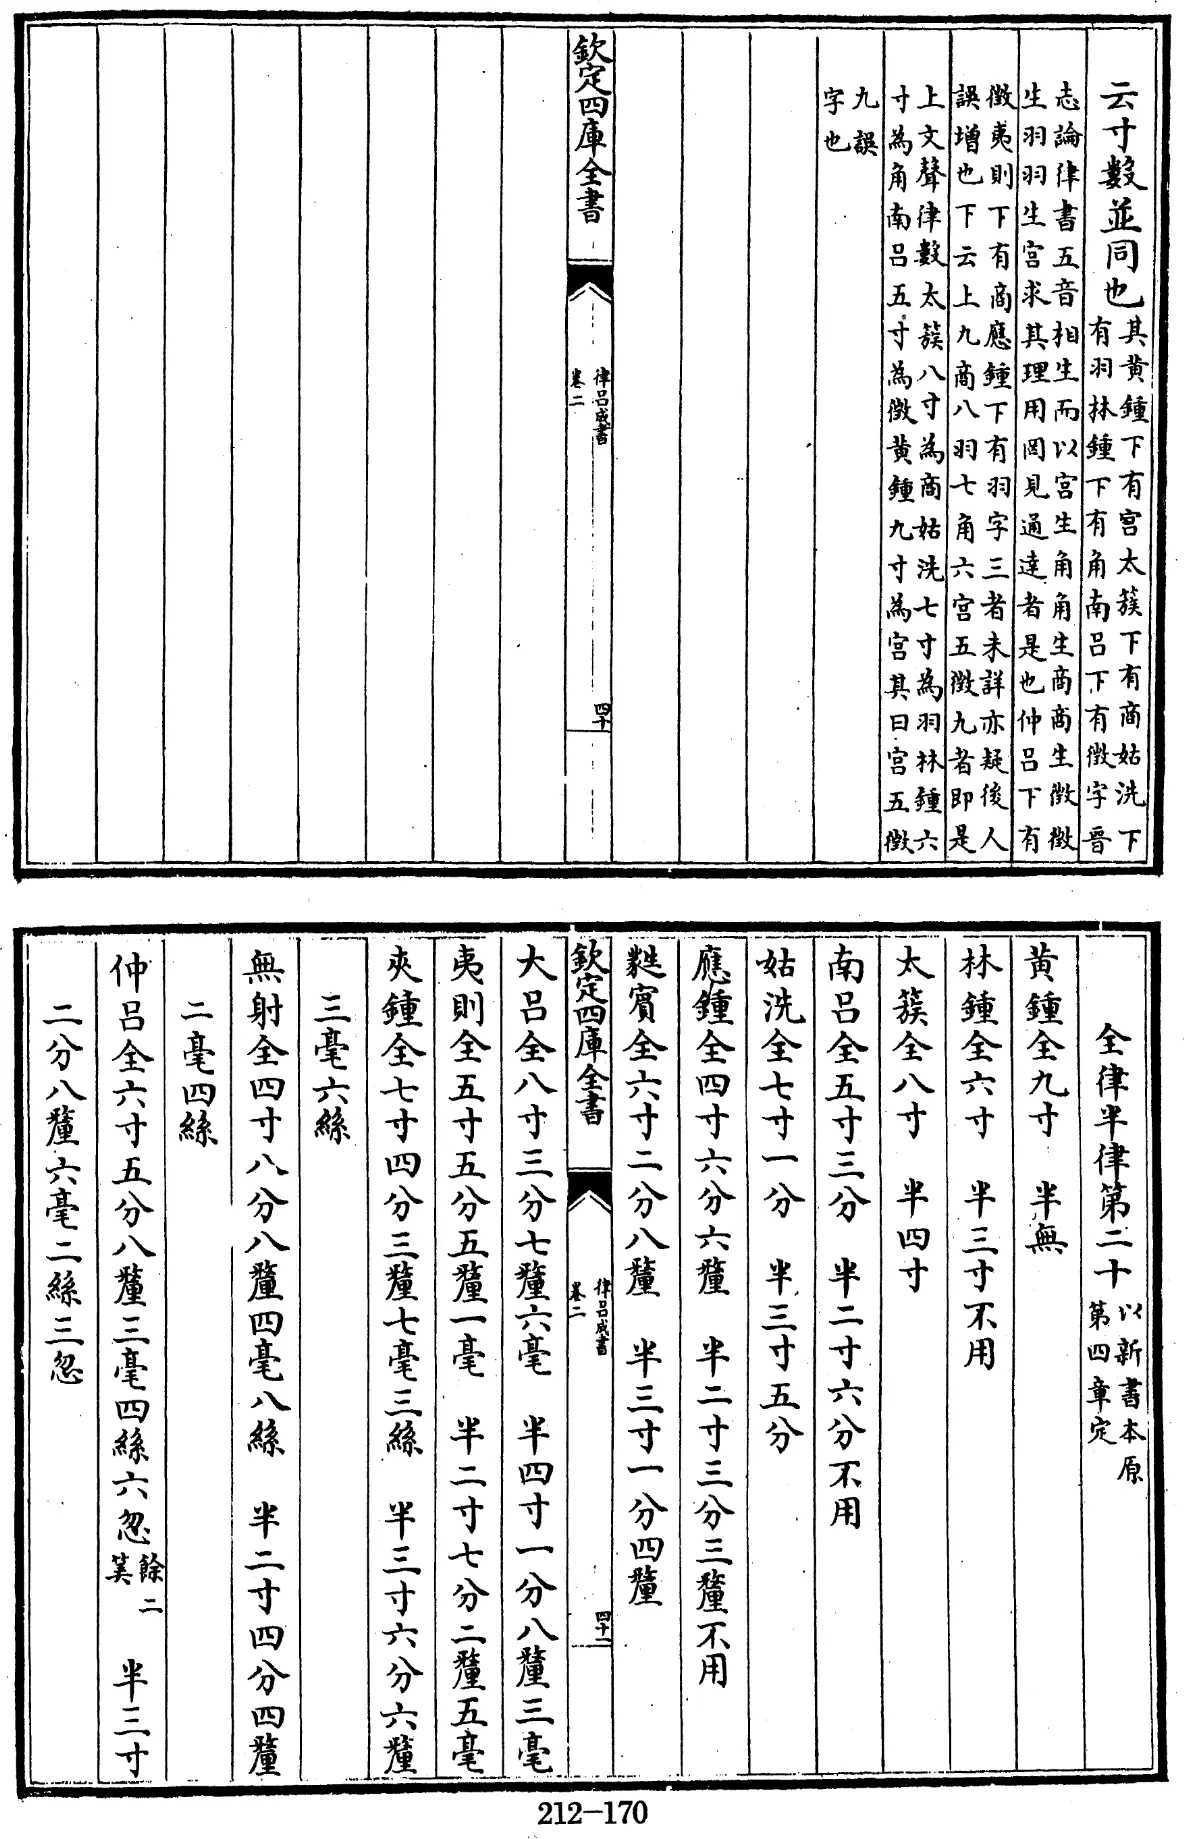 云寸數並同也
其黄鍾下有宫太簇下有商姑洗下
有羽林鍾下有角南吕下有徵字晉
志論律書五音相生而以宫生角角生商商生徵徵
生羽羽生宫求其理用罔見通達者是也仲吕下有
徵夷則下有商應鍾下有羽字三者未詳亦疑後人
誤增也下云上九商八羽七角六宫五徵九者即是
上文聲律數太簇八寸為商姑洗七寸為羽林鍾六
寸為角南吕五寸為徵黄鍾九寸為宫其曰宫五徵
九誤
字也
欽定四庫全書
律吕成書
卷二
四十
全律半律第二十
以新書本原
第四章定
黄鍾全九寸 半無
林鍾全六寸 半三寸不用
太簇全八寸 半四寸
南吕全五寸三分 半二寸六分不用
姑洗全七寸一分 半三寸五分
應鍾全四寸六分六釐 半二寸三分三釐不用
蕤賓全六寸二分八釐 半三寸一分四釐
欽定四庫全書
律吕成書
卷二
四十一
大吕全八寸三分七釐六毫 半四寸一分八釐三毫
夷則全五寸五分五釐一毫 半二寸七分二釐五毫
夾鍾全七寸四分三釐七毫三絲 半三寸六分六釐
三毫六絲
無射全四寸八分八釐四毫八絲 半二寸四分四釐
二毫四絲
仲吕全六寸五分八釐三毫四絲六忽
餘二
筭
半三寸
二分八釐六毫二絲三忽
212-170